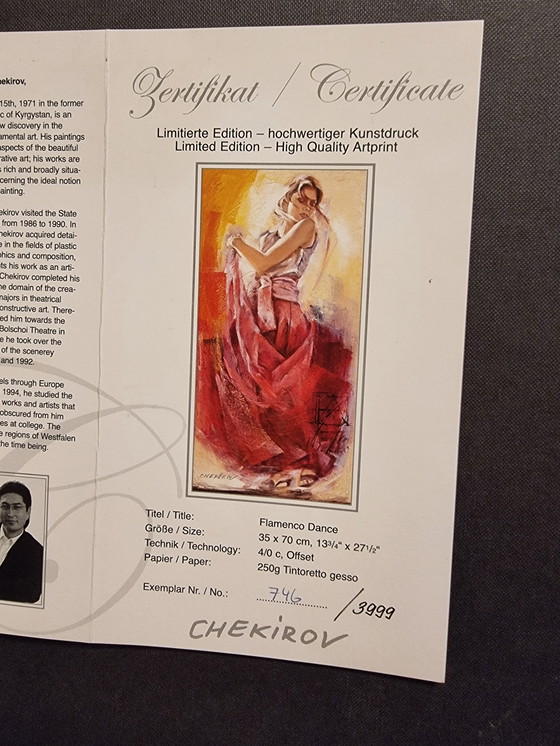 ekirov,
15th, 1971 in the former
c of Kyrgystan, is an
w discovery in the
amental art. His paintings
aspects of the beautiful
rative art; his works are
rich and broadly situa-
cerning the ideal notion
ainting.
ekirov visited the State
from 1986 to 1990. In
hekirov acquired detai-
e in the fields of plastic
hics and composition,
ts his work as an arti-
Chekirov completed his
e domain of the crea-
majors in theatrical
onstructive art. There-
ed him towards the
Bolschoi Theatre in
e he took over the
of the scenerey
and 1992.
els through Europe
1994, he studied the
works and artists that
obscured from him
es at college. The
e regions of Westfalen
the time being.
Zertifikat / Certificate
Limitierte Edition – hochwertiger Kunstdruck
Limited Edition – High Quality Artprint
CHEKIROV
Titel / Title: Flamenco Dance
Größe / Size: 35 x 70 cm, 13¾" x 27½"
Technik / Technology: 4/0 c, Offset
Papier / Paper: 250g Tintoretto gesso
Exemplar Nr. / No.: 746 /3999
CHEKIROV